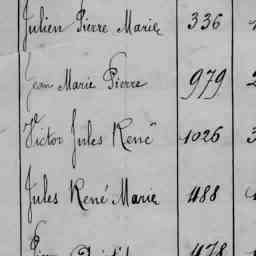 Julien Pierre Marie 336
Jean Marie Pierre 979
Victor Jules René 1026 3
Jules René Marie 488
478